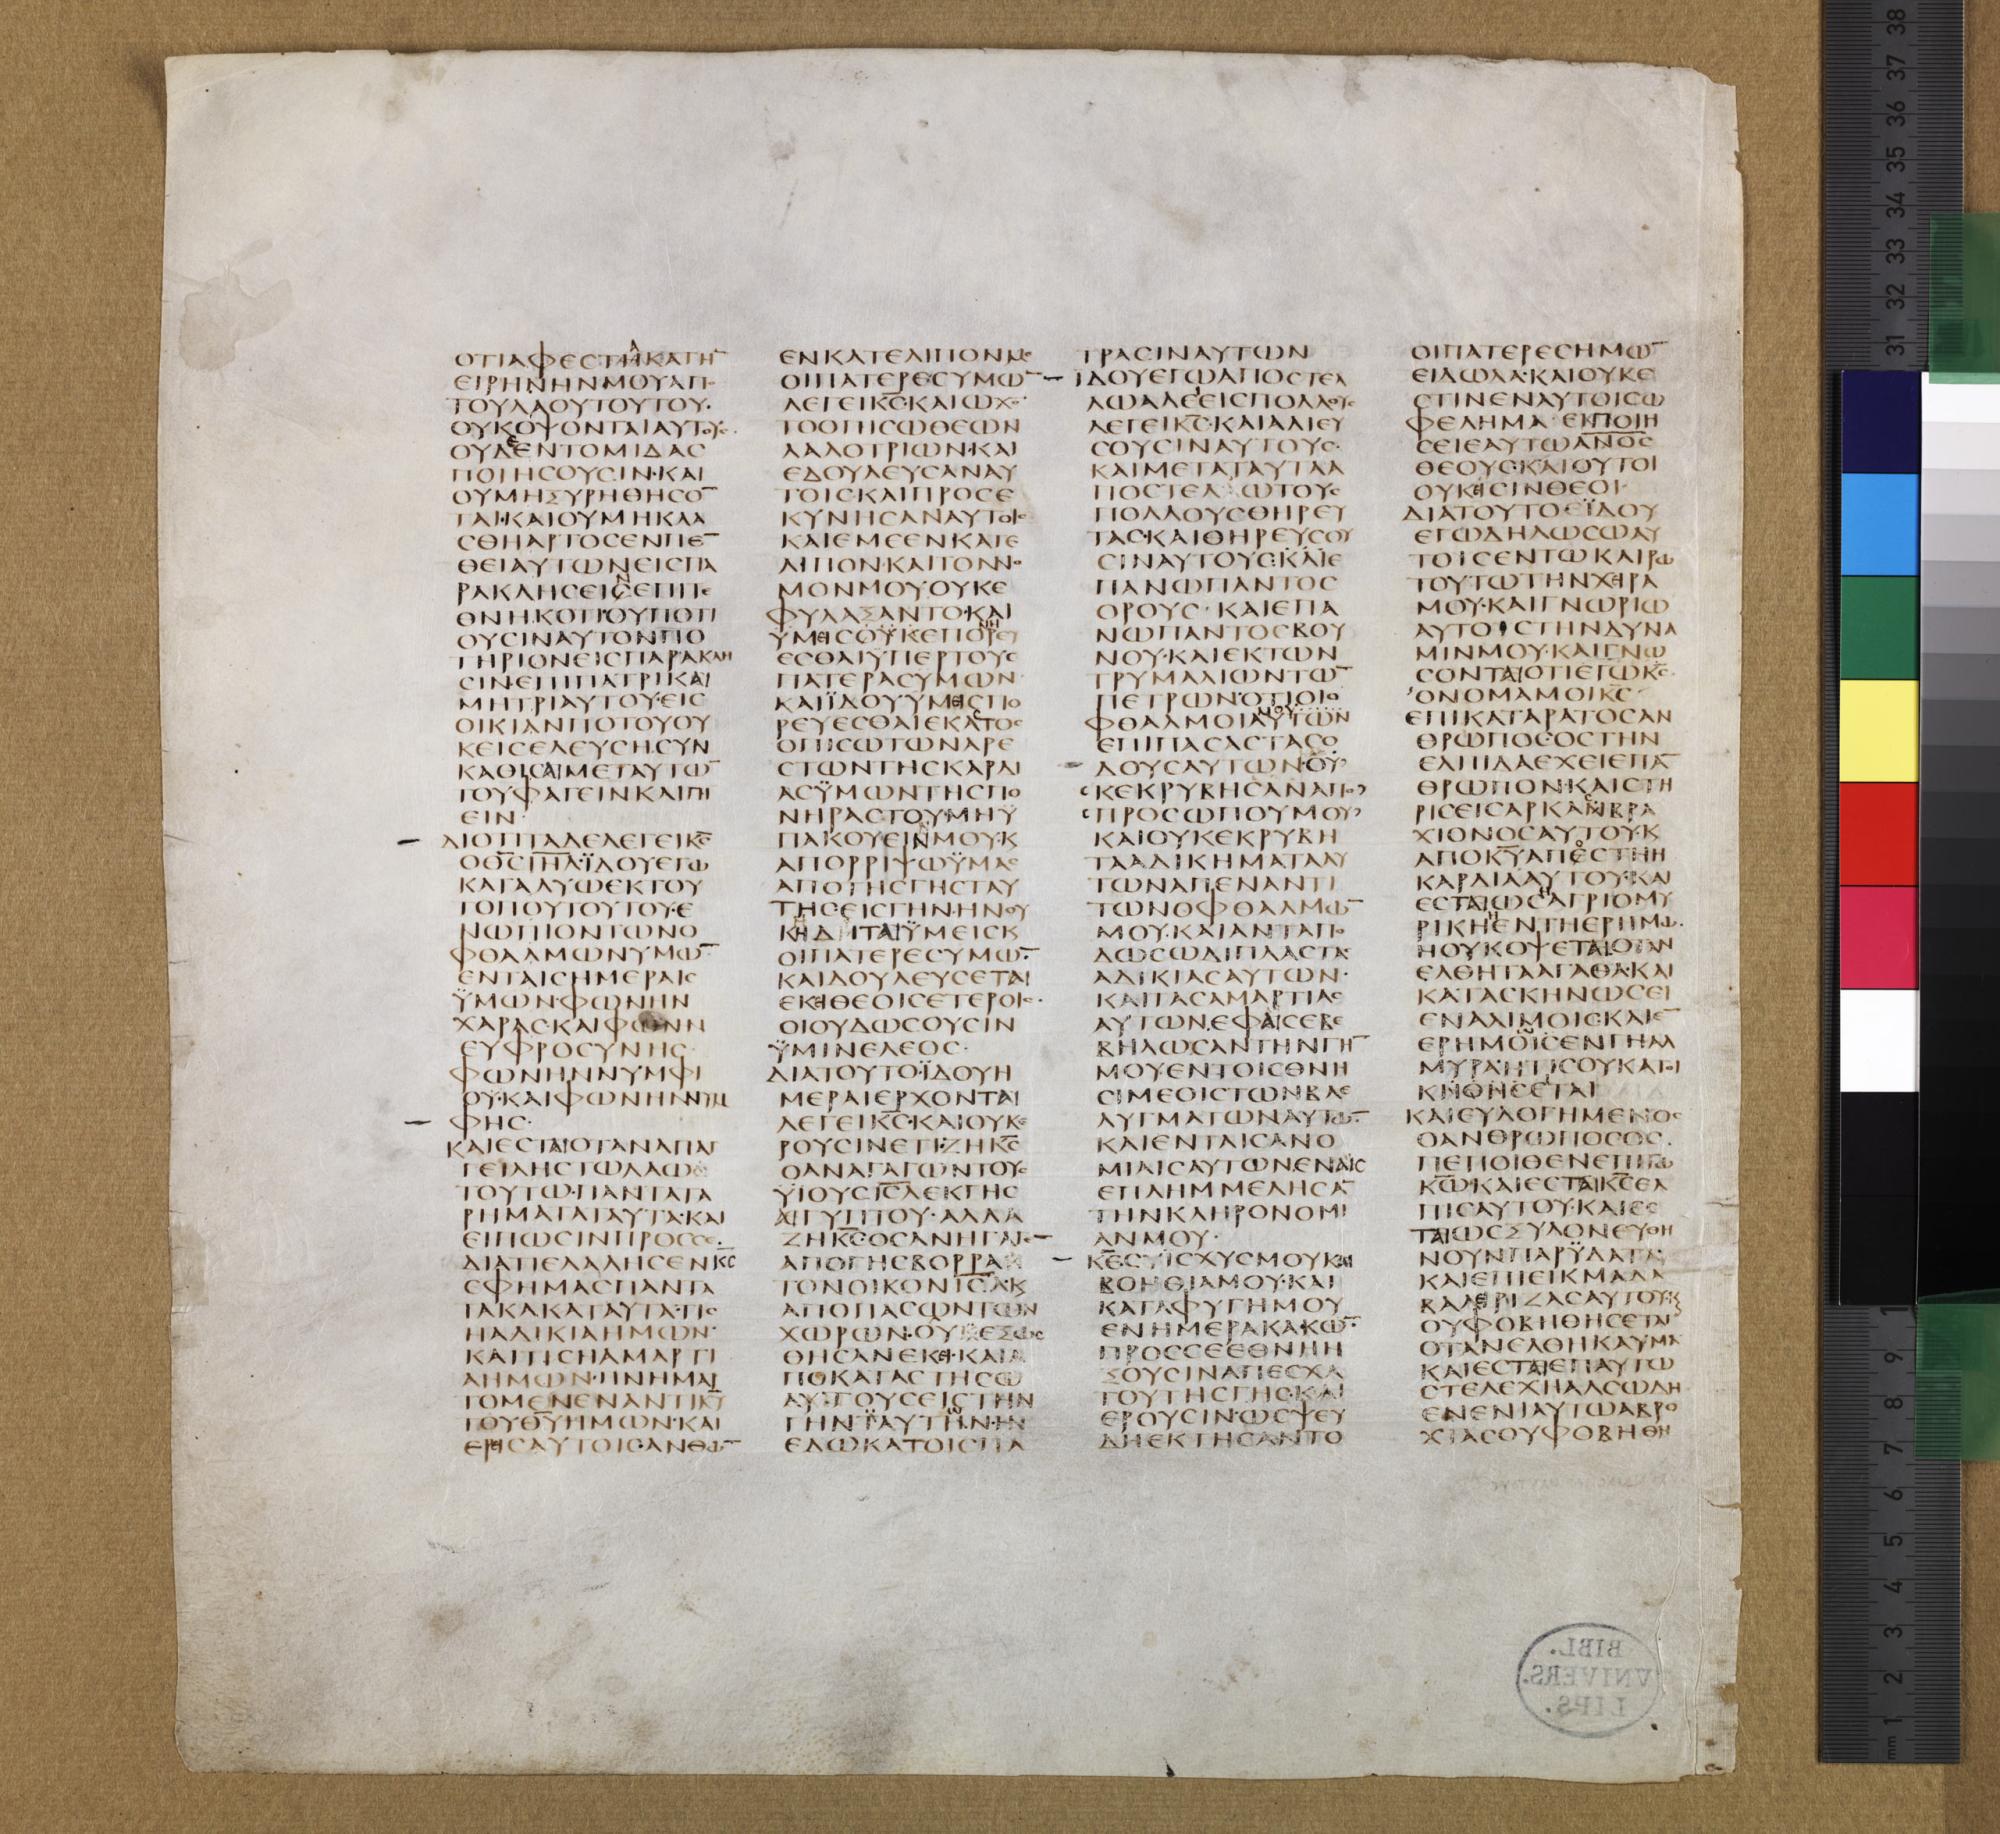 ΟΤΙΑΦΕϹΤΗΚΑΤΗ
ΕΙΡΗΝΗΝΜΟΥΑΠΟ
ΤΟΥΛΑΟΥΤΟΥΤΟΥ·
ΟΥΚΟΨΟΝΤΑΙΑΥΤΟΥϹ
ΟΥΔΕΝΤΟΜΙΔΑϹ
ΠΟΙΗϹΟΥϹΙΝ·ΚΑΙ
ΟΥΜΗΞΥΡΗΘΗϹΟ̅
ΤΑΙ·ΚΑΙΟΥΜΗΚΛΑ
ϹΘΗΑΡΤΟϹΕΝΠΕ̅
ΘΕΙΑΥΤΩΝΕΙϹΠΑ
ΡΑΚΛΗϹΕΙϹΕΠΙΤΕ
ΘΝΗΚΟΤΙΟΥΠΟΤΙ
ΟΥϹΙΝΑΥΤΟΝΠΟ
ΤΗΡΙΟΝΕΙϹΠΑΡΑΚΛΗ
ϹΙΝΕΠΙΠΑΤΡΙΚΑΙ
ΜΗΤΡΙΑΥΤΟΥ·ΕΙϹ
ΟΙΚΙΑΝΠΟΤΟΥΟΥ
ΚΕΙϹΕΛΕΥϹΗϹΥΝ
ΚΑΘΙϹΑΙΜΕΤΑΥΤΩ̅
ΤΟΥΦΑΓΕΙΝΚΑΙΠΙ
ΕΙΝ·
ΔΙΟΤΙΤΑΔΕΛΕΓΕΙΚ̅Ϲ̅
ΟΘ̅Ϲ̅Ι̅Η̅Λ̅ΪΔΟΥΕΓΩ
ΚΑΤΑΛΥΩΕΚΤΟΥ
ΤΟΠΟΥΤΟΥΤΟΥ·Ε
ΝΩΠΙΟΝΤΩΝΟ
ΦΘΑΛΜΩΝΥΜΩ̅·
ΕΝΤΑΙϹΗΜΕΡΑΙϹ
ΫΜΩΝ·ΦΩΝΗΝ
ΧΑΡΑϹ·ΚΑΙΦΩΝΗΝ
ΕΥΦΡΟϹΥΝΗϹ·
ΦΩΝΗΝΝΥΜΦΙ
ΟΥ·ΚΑΙΦΩΝΗΝΝΥΜ
ΦΗϹ·
ΚΑΙΕϹΤΑΙΟΤΑΝΑΠΑΓ
ΓΕΙΛΗϹΤΩΛΑΩ
ΤΟΥΤΩ·ΠΑΝΤΑΤΑ
ΡΗΜΑΤΑΤΑΥΤΑ·ΚΑΙ
ΕΙΠΩϹΙΝΠΡΟϹϹΕ·
ΔΙΑΤΙΕΛΑΛΗϹΕΝΚ̅Ϲ̅
ΕΦΗΜΑϹΠΑΝΤΑ
ΤΑΚΑΚΑΤΑΥΤΑ·ΤΙϹ
ΗΑΔΙΚΙΑΗΜΩΝ·
ΚΑΙΤΙϹΗΑΜΑΡΤΙ
ΑΗΜΩΝ·ΗΝΗΜΑΡ
ΤΟΜΕΝΕΝΑΝΤΙΚ̅Υ̅
ΤΟΥΘ̅Υ̅ΗΜΩΝ·ΚΑΙ
ΕΡΙϹΑΥΤΟΙϹ·ΑΝΘΩ̅
ΕΝΚΑΤΕΛΙΠΟΝΜΕ
ΟΙΠΑΤΕΡΕϹΥΜΩ̅
ΛΕΓΕΙΚ̅Ϲ̅·ΚΑΙΩΧΟ̅
ΤΟΟΠΙϹΩΘΕΩΝ
ΑΛΛΟΤΡΙΩΝ·ΚΑΙ
ΕΔΟΥΛΕΥϹΑΝΑΥ
ΤΟΙϹΚΑΙΠΡΟϹΕ
ΚΥΝΗϹΑΝΑΥΤΟΙϹ
ΚΑΙΕΜΕΕΝΚΑΤΕ
ΛΙΠΟΝ·ΚΑΙΤΟΝΝΟ
ΜΟΝΜΟΥ·ΟΥΚΕ
ΦΥΛΑΞΑΝΤΟ·ΚΑΙ
ΥΜΕΙϹΟΫΚΕΠΟΡΕΥ
ΕϹΘΑΙΫΠΕΡΤΟΥϹ
ΠΑΤΕΡΑϹΥΜΩΝ
ΚΑΙΪΔΟΥΫΜΕΙϹΠΟ
ΡΕΥΕϹΘΑΙΕΚΑϹΤΟϹ
ΟΠΙϹΩΤΩΝΑΡΕ
ϹΤΩΝΤΗϹΚΑΡΔΙ
ΑϹΫΜΩΝΤΗϹΠΟ
ΝΗΡΑϹΤΟΥΜΗΫ
ΠΑΚΟΥΕΙΝΜΟΥ·Κ
ΑΠΟΡΡΙΨΩΫΜΑϹ
ΑΠΟΤΗϹΓΗϹΤΑΥ
ΤΗϹΕΙϹΓΗΝ·ΗΝΟΥ
ΚΗΔΙΤΑΙΫΜΕΙϹΚ
ΟΙΠΑΤΕΡΕϹΥΜΩ̅·
ΚΑΙΔΟΥΛΕΥϹΕΤΑΙ
ΕΚΕΙΘΕΟΙϹΕΤΕΡΟΙϹ·
ΟΙΟΥΔΩϹΟΥϹΙΝ
ΫΜΙΝΕΛΕΟϹ·
ΔΙΑΤΟΥΤΟΪΔΟΥΗ
ΜΕΡΑΙΕΡΧΟΝΤΑΙ
ΛΕΓΕΙΚ̅Ϲ̅·ΚΑΙΟΥΚΕ
ΡΟΥϹΙΝΕΤΙ·ΖΗΚ̅Ϲ̅
ΟΑΝΑΓΑΓΩΝΤΟΥϹ
ΫΙΟΥϹΙ̅Ϲ̅Λ̅ΕΚΓΗϹ
ΑΙΓΥΠΤΟΥ·ΑΛΛΑ
ΖΗΚ̅Ϲ̅ΟϹΑΝΗΓΑΓΕ̅
ΑΠΟΓΗϹΒΟΡΡΑ
ΤΟΝΟΙΚΟΝΙ̅Ϲ̅Λ̅Κ
ΑΠΟΠΑϹΩΝΤΩΝ
ΧΩΡΩΝ·ΟΥΕΞΩϹ
ΘΗϹΑΝΕΚΕΙ·ΚΑΙΑ
ΠΟΚΑΤΑϹΤΗϹΩ
ΑΥΤΟΥϹΕΙϹΤΗΝ
ΓΗΝΤΑΥΤΗΝ·ΗΝ
ΕΔΩΚΑΤΟΙϹΠΑ
ΤΡΑϹΙΝΑΥΤΩΝ
ΪΔΟΥΕΓΩΑΠΟϹΤΕΛ
ΛΩΑΛΕΕΙϹΠΟΛΛΟΥϹ
ΛΕΓΕΙΚ̅Ϲ̅·ΚΑΙΑΛΙΕΥ
ϹΟΥϹΙΝΑΥΤΟΥϹ·
ΚΑΙΜΕΤΑΤΑΥΤΑΑ
ΠΟϹΤΕΛΩΤΟΥϹ
ΠΟΛΛΟΥϹΘΗΡΕΥ
ΤΑϹ·ΚΑΙΘΗΡΕΥϹΟΥ
ϹΙΝΑΥΤΟΥϹ·ΚΑΙΕ
ΠΑΝΩΠΑΝΤΟϹ
ΟΡΟΥϹ·ΚΑΙΕΠΑ
ΝΩΠΑΝΤΟϹΒΟΥ
ΝΟΥ·ΚΑΙΕΚΤΩΝ
ΤΡΥΜΑΛΙΩΝΤΩ̅
ΠΕΤΡΩΝ·ΟΤΙΟΙΟ
ΦΘΑΛΜΟΙΑΥΤΩΝ
ΕΠΙΠΑϹΑϹΤΑϹΟ
ΔΟΥϹΑΥΤΩΝ·ΟΥ
ΚΕΚΡΥΒΗϹΑΝΑΠΟ
ΠΡΟϹΩΠΟΥΜΟΥ
ΚΑΙΟΥΚΕΚΡΥΒΗ
ΤΑΑΔΙΚΗΜΑΤΑΑΥ
ΤΩΝΑΠΕΝΑΝΤΙ
ΤΩΝΟΦΘΑΛΜΩ̅
ΜΟΥ·ΚΑΙΑΝΤΑΠΟ
ΔΩϹΩΔΙΠΛΑϹΤΑϹ
ΑΔΙΚΙΑϹΑΥΤΩΝ·
ΚΑΙΤΑϹΑΜΑΡΤΙΑϹ
ΑΥΤΩΝ·ΕΦΑΙϹΕΒΕ
ΒΗΛΩϹΑΝΤΗΝΓΗ̅
ΜΟΥΕΝΤΟΙϹΘΝΗ
ϹΙΜΕΟΙϹΤΩΝΒΔΕ
ΛΥΓΜΑΤΩΝΑΥΤΩ̅·
ΚΑΙΕΝΤΑΙϹΑΝΟ
ΜΙΑΙϹΑΥΤΩΝ·ΕΝΑΙϹ
ΕΠΛΗΜΜΕΛΗϹΑ̅
ΤΗΝΚΛΗΡΟΝΟΜΙ
ΑΝΜΟΥ·
Κ̅Ε̅ϹΥΪϹΧΥϹΜΟΥΚΑΙ
ΒΟΗΘΙΑΜΟΥ·ΚΑΙ
ΚΑΤΑΦΥΓΗΜΟΥ
ΕΝΗΜΕΡΑΚΑΚΩ̅·
ΠΡΟϹϹΕΕΘΝΗΗ
ΞΟΥϹΙΝΑΠΕϹΧΑ
ΤΟΥΤΗϹΓΗϹ·ΚΑΙ
ΕΡΟΥϹΙΝ·ΩϹΨΕΥ
ΔΗΕΚΤΗϹΑΝΤΟ
ΟΙΠΑΤΕΡΕϹΗΜΩ̅
ΕΙΔΩΛΑ·ΚΑΙΟΥΚΕ
ϹΤΙΝΕΝΑΥΤΟΙϹΩ
ΦΕΛΗΜΑ·ΕΙΠΟΙΗ
ϹΕΙΕΑΥΤΩΑ̅Ν̅Ο̅Ϲ̅
ΘΕΟΥϹ·ΚΑΙΟΥΤΟΙ
ΟΥΚΕΙϹΙΝΘΕΟΙ·
ΔΙΑΤΟΥΤΟΕΪΔΟΥ
ΕΓΩΔΗΛΩϹΩΑΥ
ΤΟΙϹΕΝΤΩΚΑΙΡΩ
ΤΟΥΤΩΤΗΝΧΕΙΡΑ
ΜΟΥ·ΚΑΙΓΝΩΡΙΩ
ΑΥΤΟΙϹΤΗΝΔΥΝΑ
ΜΙΝΜΟΥ·ΚΑΙΓΝΩ
ϹΟΝΤΑΙΟΤΙΕΓΩΚ̅Ϲ̅
ΟΝΟΜΑΜΟΙΚ̅Ϲ̅
ΕΠΙΚΑΤΑΡΑΤΟϹΑΝ
ΘΡΩΠΟϹ·ΟϹΤΗΝ
ΕΛΠΙΔΑΕΧΕΙΕΠΑ̅
ΘΡΩΠΟΝ·ΚΑΙϹΤΗ
ΡΙϹΕΙϹΑΡΚΑΝΒΡΑ
ΧΙΟΝΟϹΑΥΤΟΥ·Κ
ΑΠΟΚ̅Υ̅ΑΠΕϹΤΗΗ
ΚΑΡΔΙΑΑΥΤΟΥ·ΚΑΙ
ΕϹΤΑΙΩϹΑΓΡΙΟΜΥ
ΡΙΚΗΕΝΤΗΕΡΗΜΩ·
ΗΟΥΚΟΨΕΤΑΙΟΤΑΝ
ΕΛΘΗΤΑΑΓΑΘΑ·ΚΑΙ
ΚΑΤΑϹΚΗΝΩϹΕΙ
ΕΝΑΛΙΜΟΙϹ·ΚΑΙΕ̅
ΕΡΗΜΟΙϹΕΝΓΗΑΛ
ΜΥΡΑ·ΗΤΙϹΟΥΚΑΤΟΙ
ΚΗΘΗϹΕΤΑΙ
ΚΑΙΕΥΛΟΓΗΜΕΝΟϹ
ΟΑΝΘΡΩΠΟϹΟϹ
ΠΕΠΟΙΘΕΝΕΠΙΤΩ
Κ̅Ω̅·ΚΑΙΕϹΤΑΙΚ̅Ϲ̅ΕΛ
ΠΙϹΑΥΤΟΥ·ΚΑΙΕϹ
ΤΑΙΩϹΞΥΛΟΝΕΥΘΗ
ΝΟΥΝΠΑΡΫΔΑΤΑ
ΚΑΙΕΠΙΕΙΚΜΑΔΑ
ΒΑΛΕΙΡΙΖΑϹΑΥΤΟΥ
ΟΥΦΟΒΗΘΗϹΕΤΑΙ
ΟΤΑΝΕΛΘΗΚΑΥΜΑ
ΚΑΙΕϹΤΑΙΕΠΑΥΤΩ
ϹΤΕΛΕΧΗΑΛϹΩΔΗ
ΕΝΕΝΙΑΥΤΩΑΒΡΟ
ΧΙΑϹΟΥΦΟΒΗΘΗ
BIBL.
VNIVERS.
LIPS.